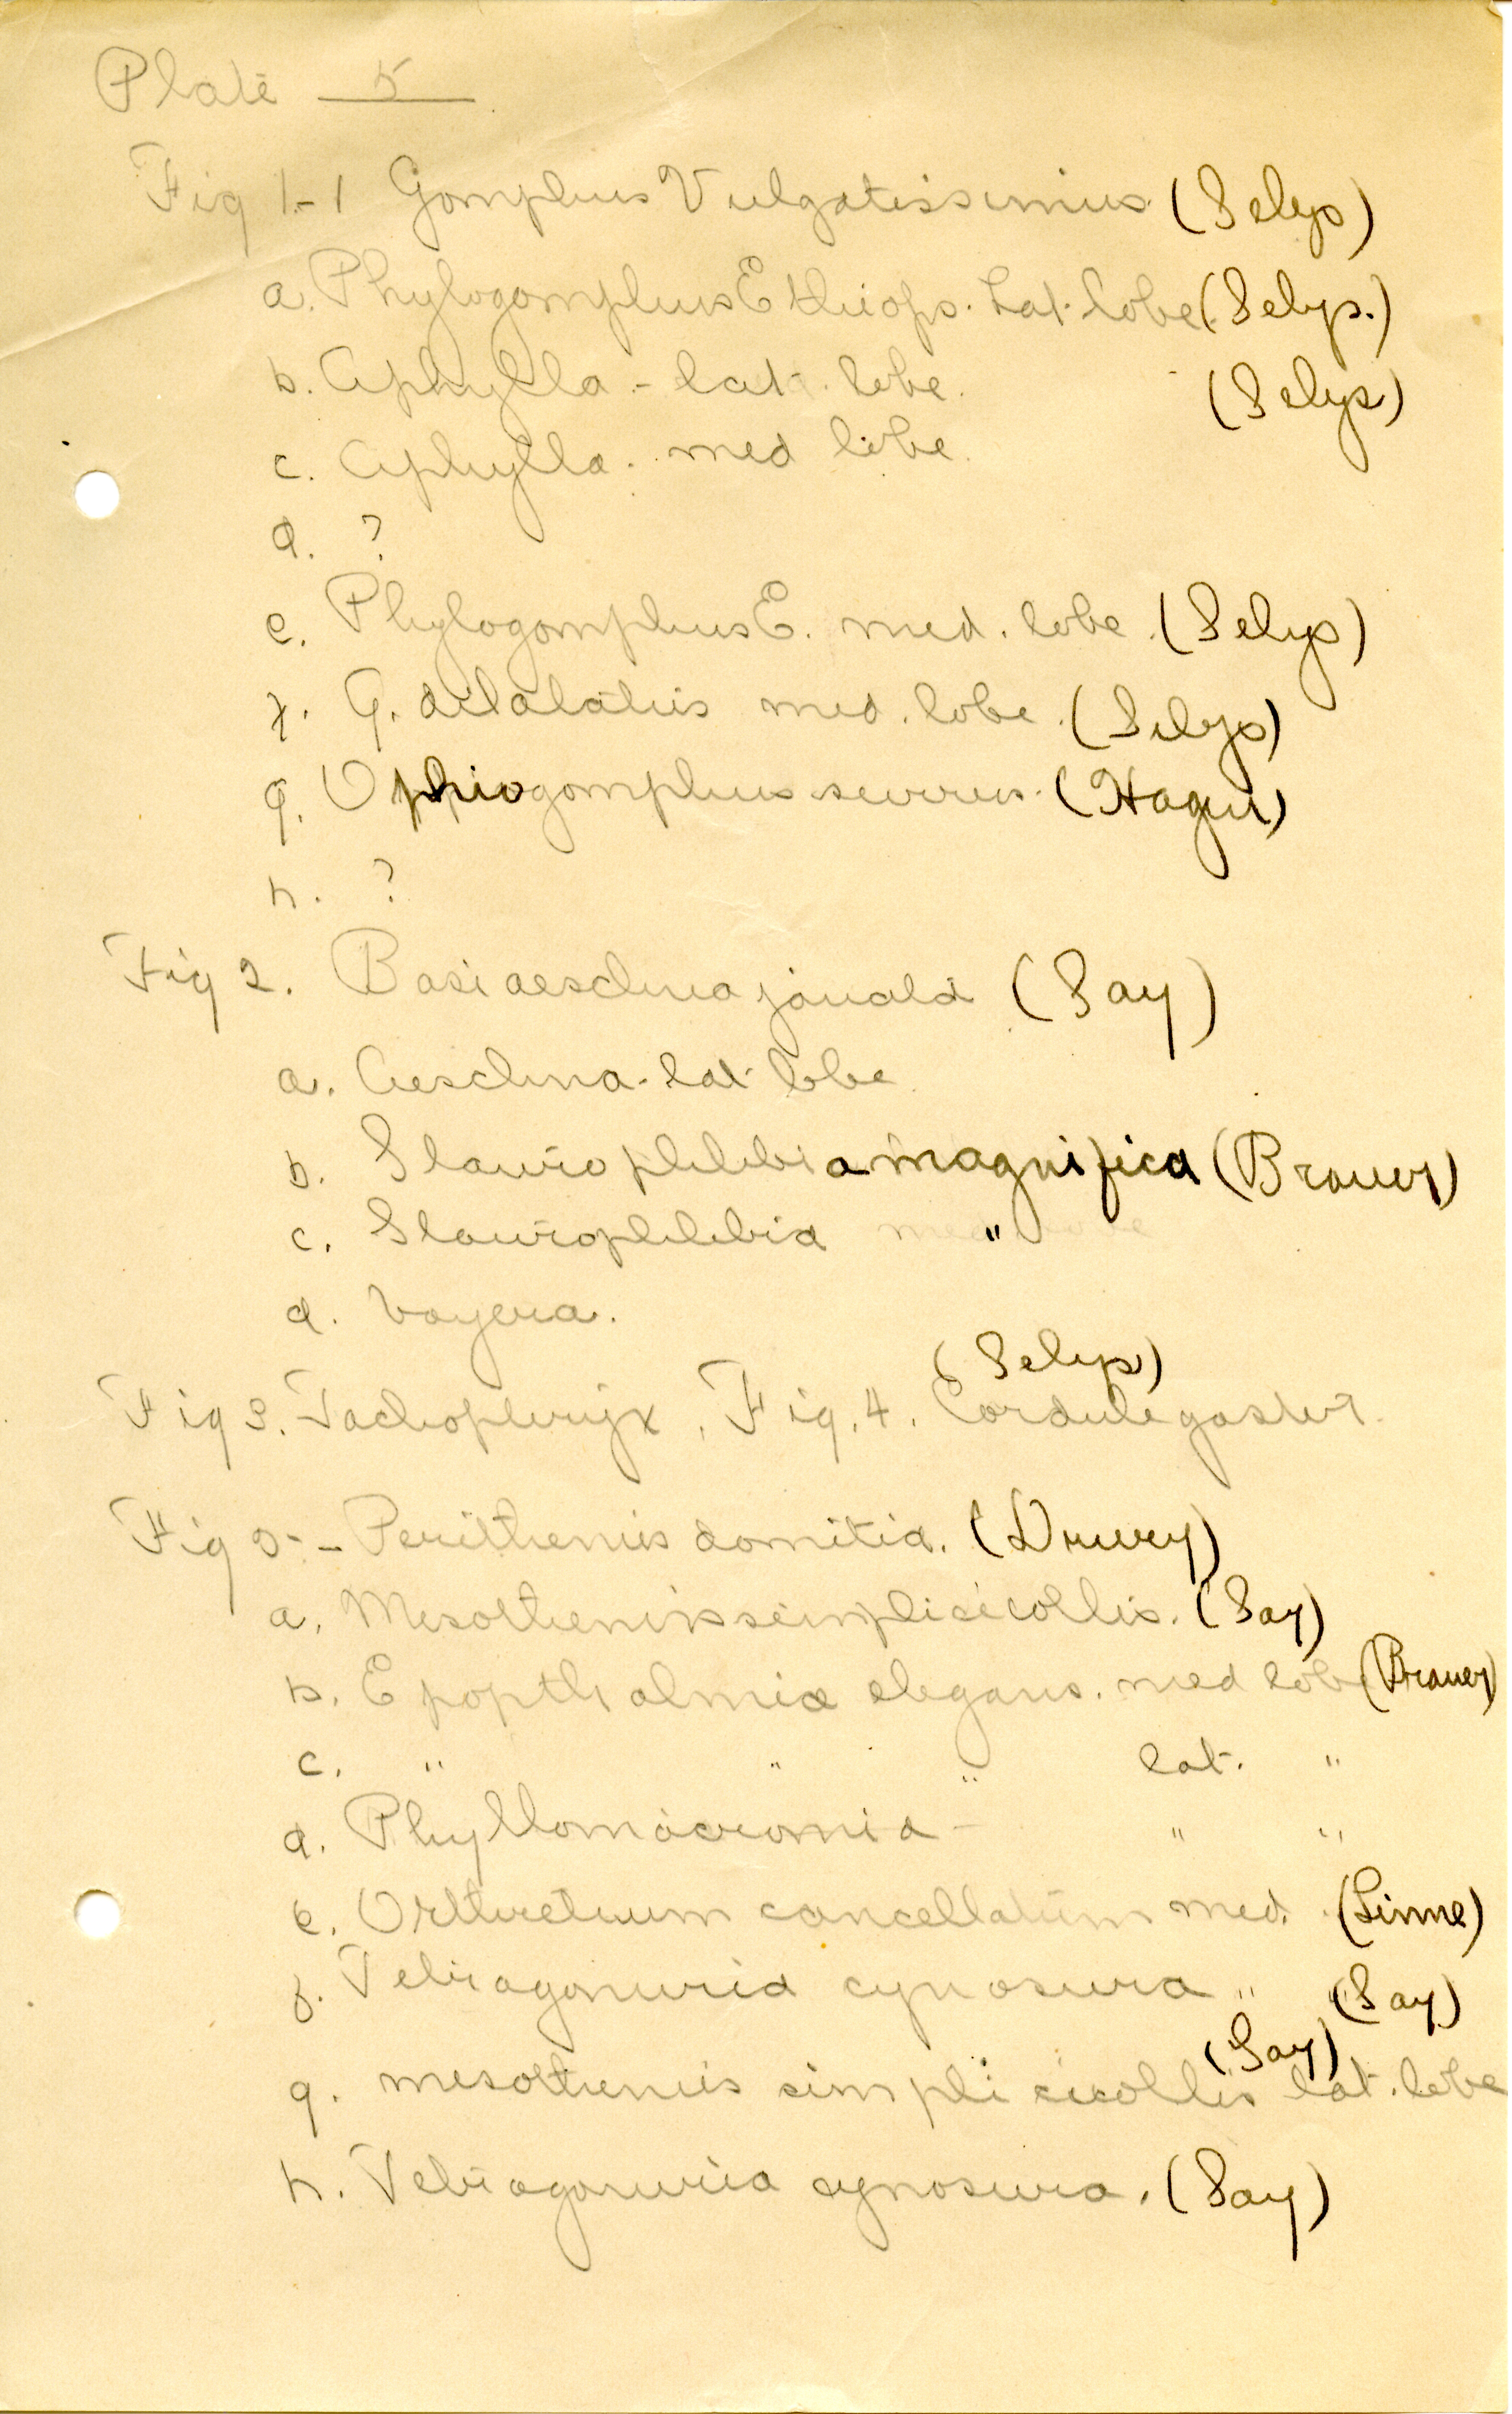 Plate 5
Fig 1-1 Gomphus Vulgatissimus (Selys)
a. Phylogomphus Ethiops. Lat. lobe (Selys.)
b. Aphylla - lat. lobe. (Selys)
c. Aphylla. med lobe.
d. ?
e. Phylogomphus E. med. lobe. (Selys)
f. G. dilatatus med. lobe. (Selys)
g. Ophiogomphus severus. (Hagen)
h. ?
Fig 2. Basiaeschna janata (Say)
a. Aeschna. lat. lobe.
b. Staurophlebia magnifica (Brauer)
c. Staurophlebia "
d. boyeria.
(Selys)
Fig 3. Tachopteryx, Fig. 4. Cordulegaster.
Fig 5- - Perithemis domitia. (Drury)
a. Mesothemis simplicicollis. (Say)
b. Epopthalmia elegans. med lobe (Brauer)
c. " " " lat. "
d. Phyllomacromia - " "
e. Orthretrum cancellatum med. (Linne)
f. Tetragonuria cynosura " (Say)
(Say)
g. mesothemis simplicicollis lat. lobe
h. Tetragonuria cynosura. (Say)